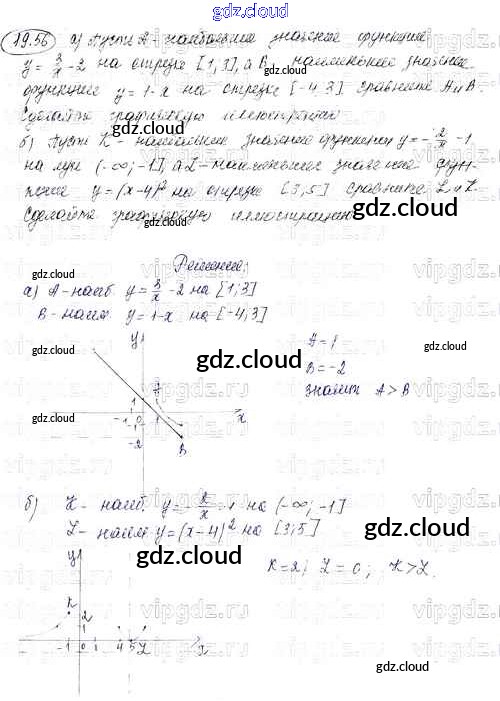 gdz.cloud
19.56 а) Пусть A - наибольшее значение функции
y = 3/x - 2 на отрезке [1, 3], а B наименьшее значение
функции y = 1 - x на отрезке [-4, 3] сравните A и B.
Сделайте графическую иллюстрацию
б) Пусть K - наибольшее значение функции y = - 2/x - 1
на луче (-∞; -1], а L - наименьшее значение функ-
y = (x-4)² на отрезке [3, 5] сравните
Сделайте графическую иллюстрацию
gdz.cloud
Решение:
а) A - наиб y = 3/x - 2 на [1; 3]
B - наим y = 1 - x на [-4, 3]
A = 1
B = -2
значит A > B
y
1
A
-1 0 1 x
-1
-2
B
б) K - наиб y = - 2/x - 1 на (-∞; -1]
L - наим y = (x-4)² на [3; 5]
K = 2; L = 0; K > L.
y
K
2
1
-1 0 1 4 5 L x
gdz.cloud
vipgdz.ru